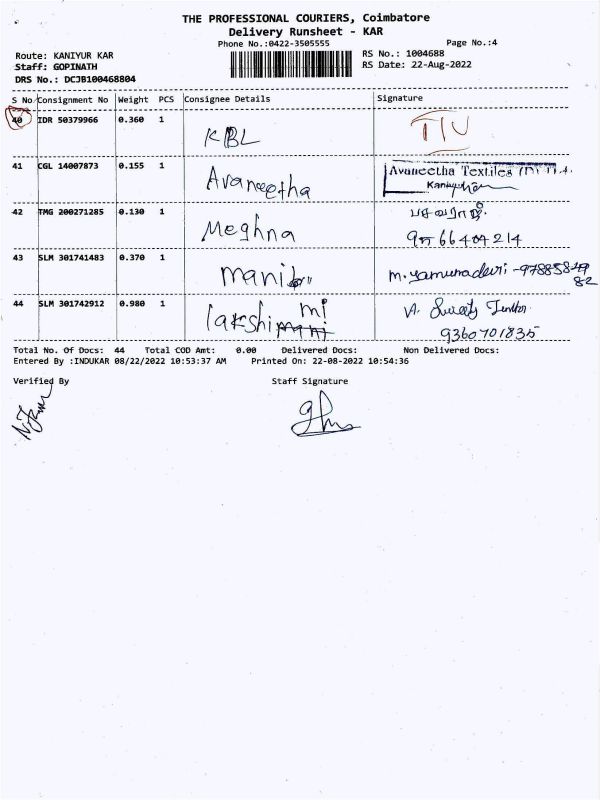 THE PROFESSIONAL COURIERS, Coimbatore
Delivery Runsheet - KAR
Phone No.:0422-3505555 Page No.:4
Route: KANIYUR KAR RS No.: 1004688
Staff: GOPINATH RS Date: 22-Aug-2022
DRS No.: DCJB100468804
S No Consignment No Weight PCS Consignee Details Signature
40 IDR 50379966 0.360 1 KBL
41 CGL 14007873 0.155 1 Avaneetha Avaneetha Textiles
42 TMG 200271285 0.130 1 Meghna
43 SLM 301741483 0.370 1 m.yamunadevi
44 SLM 301742912 0.980 1 lakshimi 9360701835
Total No. Of Docs: 44 Total COD Amt: 0.00 Delivered Docs: Non Delivered Docs:
Entered By :INDUKAR 08/22/2022 10:53:37 AM Printed On: 22-08-2022 10:54:36
Verified By Staff Signature